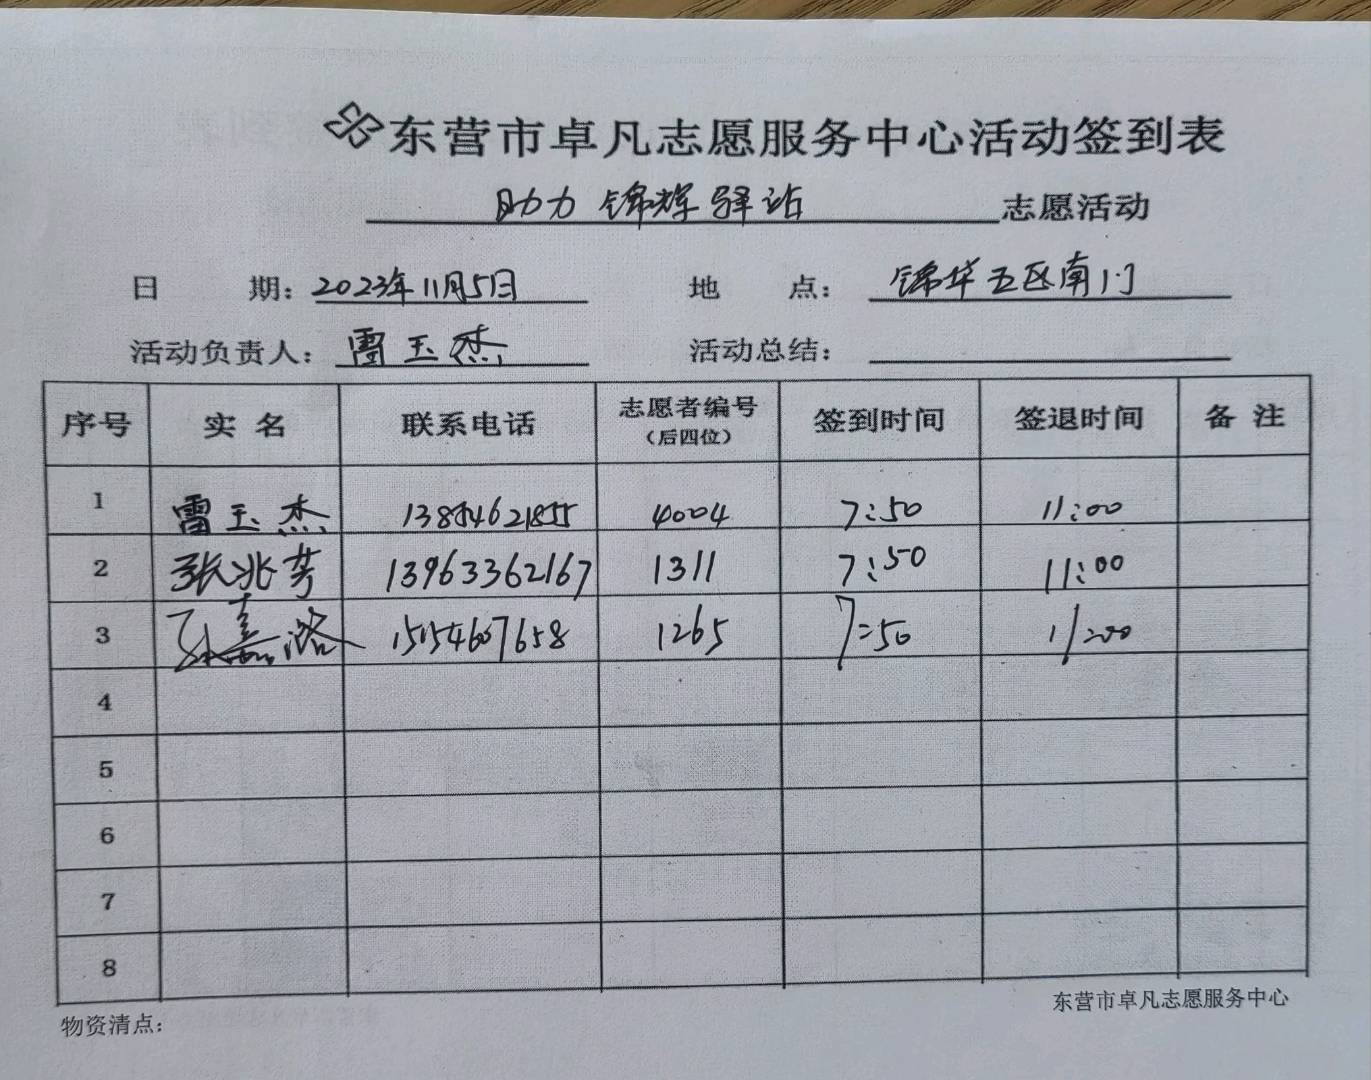 东营市卓凡志愿服务中心活动签到表
助力锦辉驿站志愿活动
日 期：2023年11月5日 地 点：锦华五区南门
活动负责人：雷玉杰 活动总结：
序号 实名 联系电话 志愿者编号（后四位） 签到时间 签退时间 备注
1 雷玉杰 13854621855 4004 7:50 11:00
2 张兆芳 13963362167 1311 7:50 11:00
3 15154607658 1265 7:50 11:00
4
5
6
7
8
物资清点： 东营市卓凡志愿服务中心